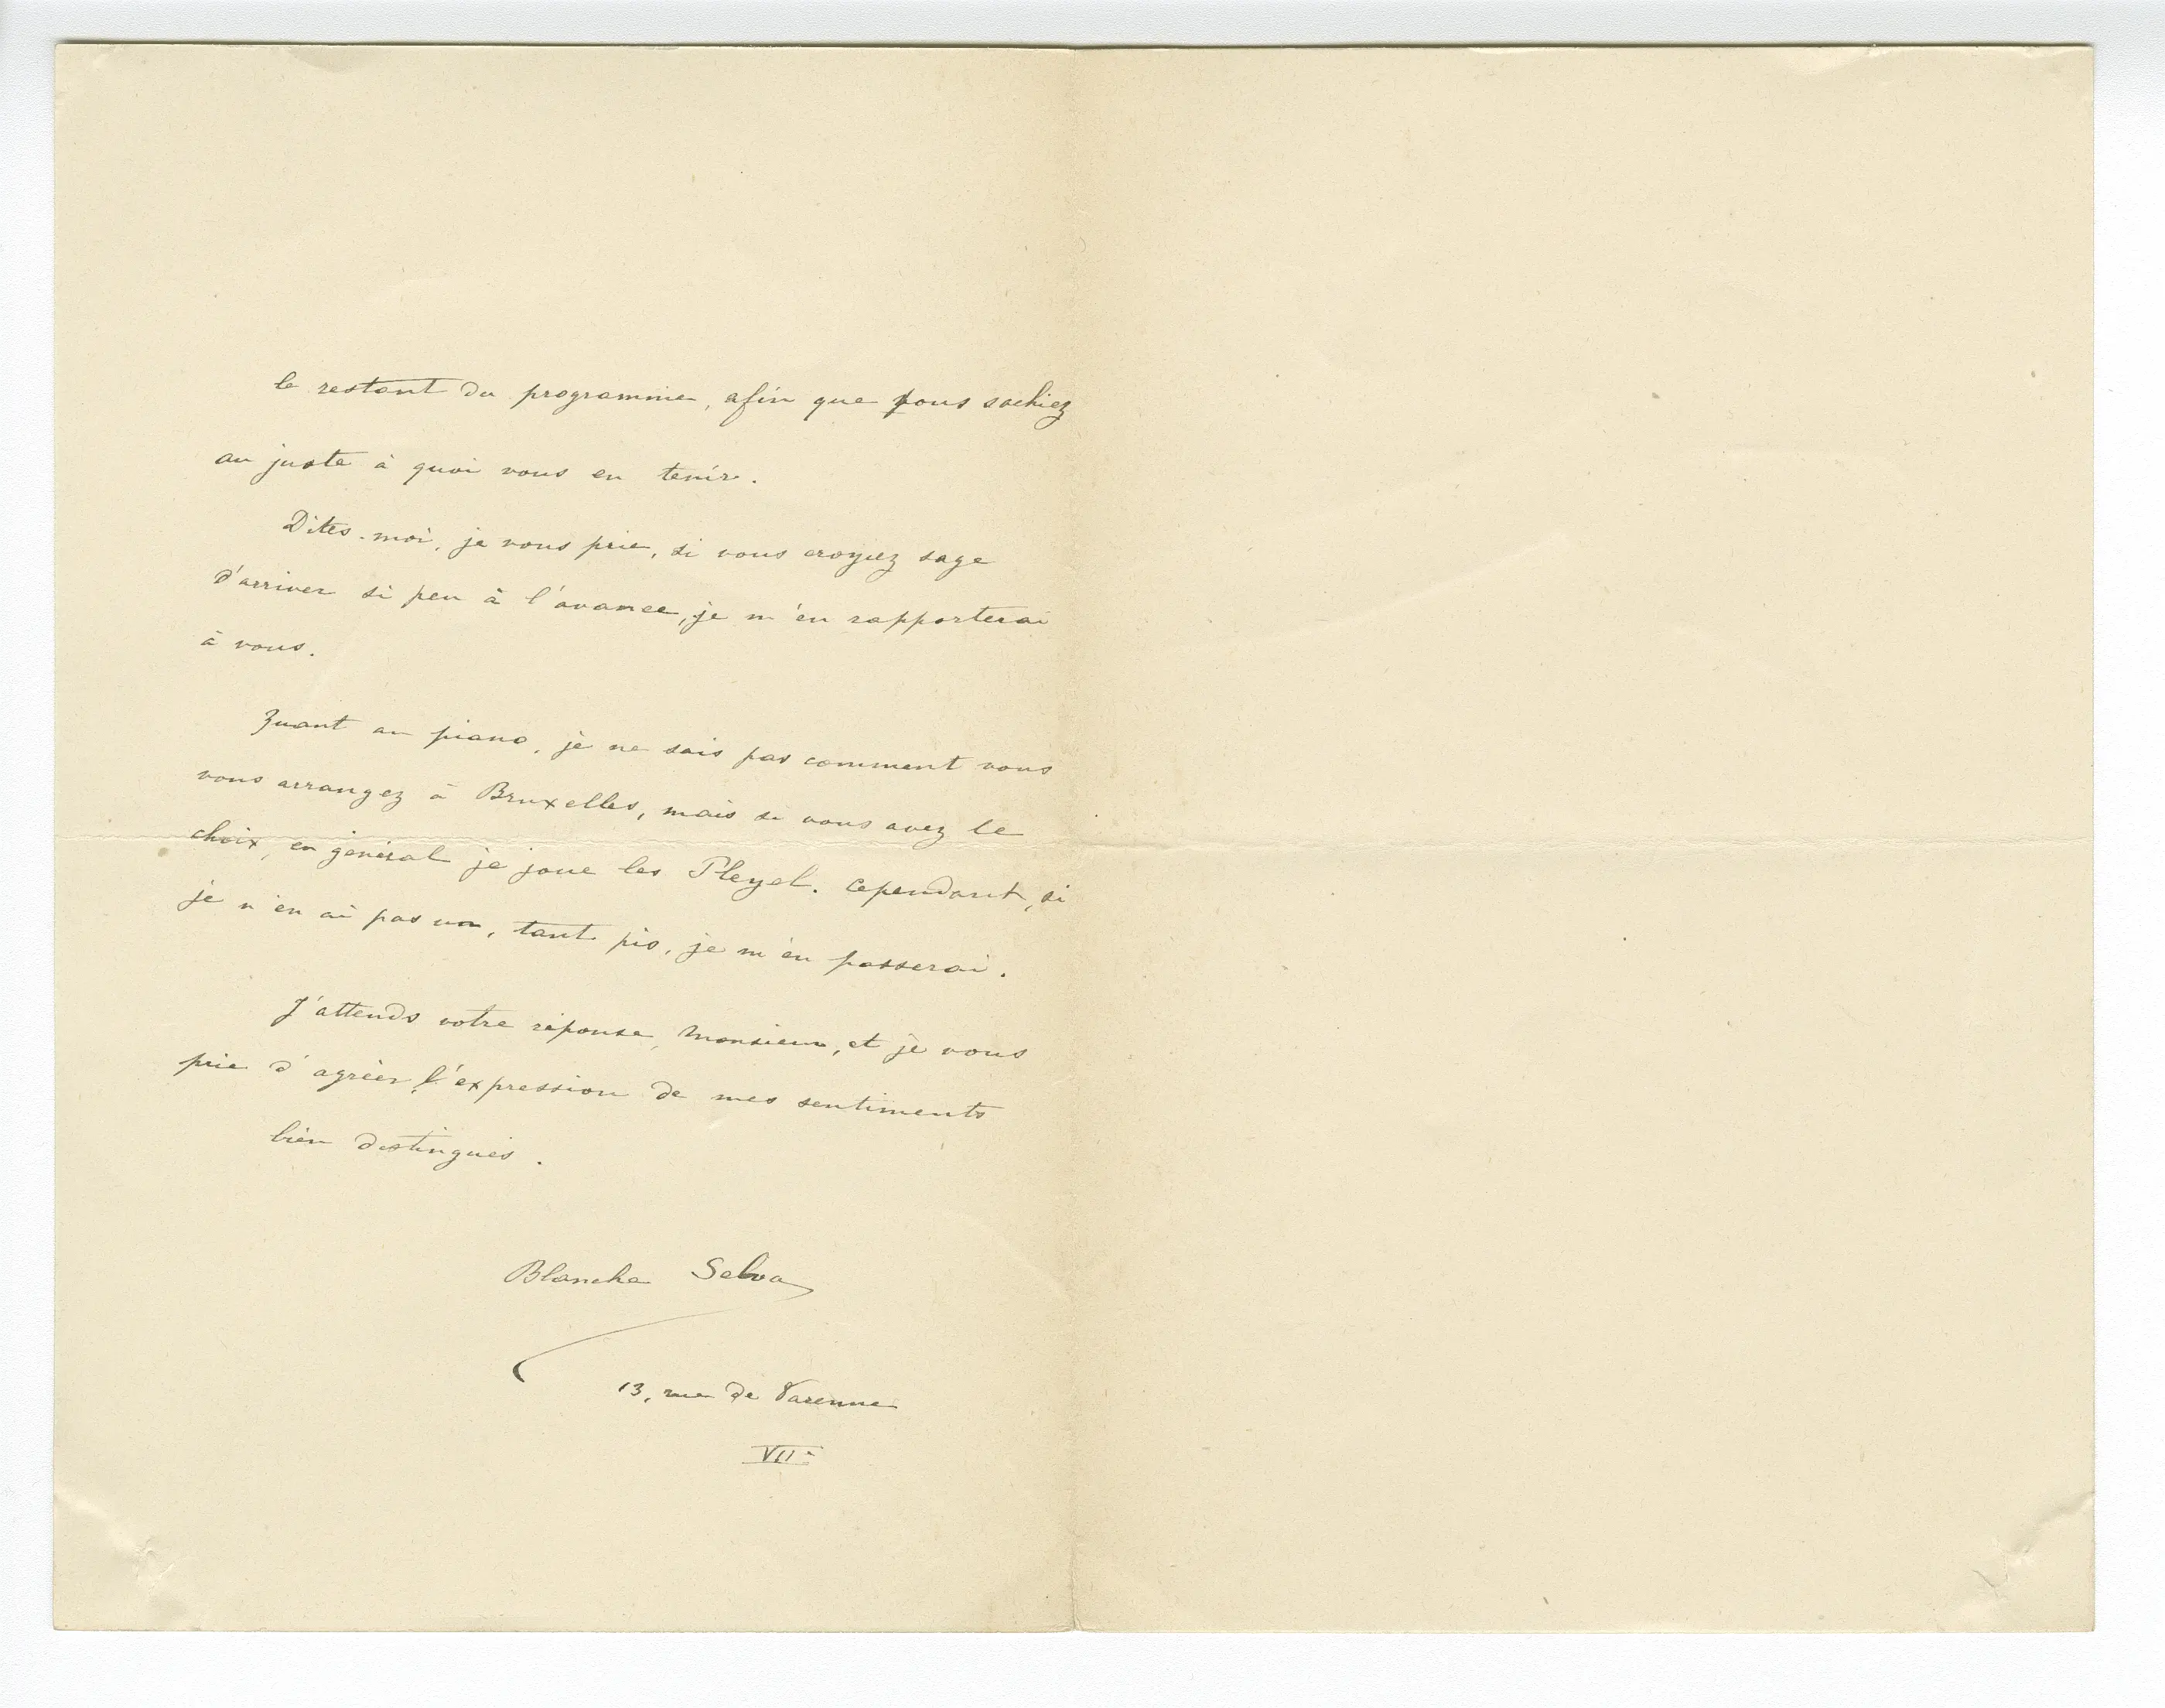 le restant du programme, afin que vous sachiez
au juste à quoi vous en tenir.
Dites-moi, je vous prie, si vous croyez sage
d'arriver si peu à l'avance, je m'en rapporterai
à vous.
Quant au piano, je ne sais pas comment vous
vous arrangez à Bruxelles, mais si vous avez le
choix, en général je joue les Pleyel. Cependant, si
je n'en ai pas un, tant pis, je m'en passerai.
J'attends votre réponse, Monsieur, et je vous
prie d'agréer l'expression de mes sentiments
bien distingués.
Blanche Selva
13, rue de Varenne
VIIe